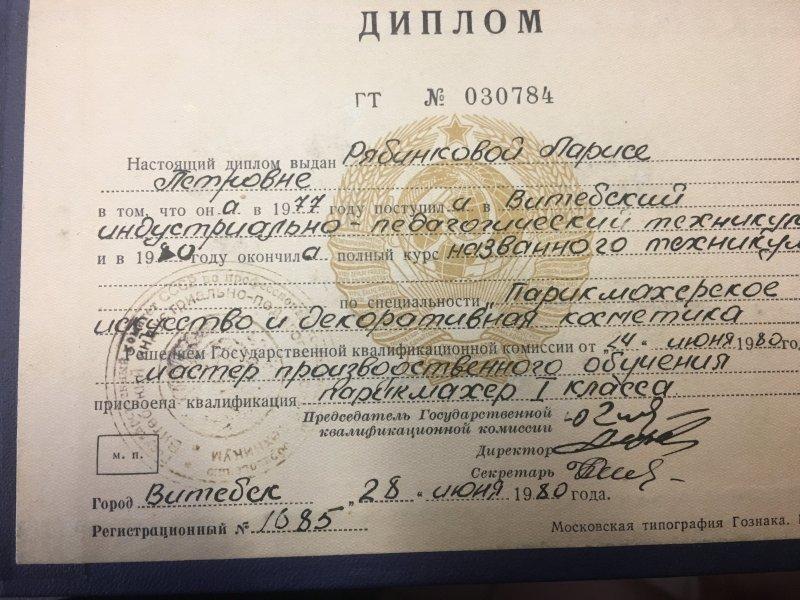 ДИПЛОМ
ГТ № 030784
Настоящий диплом выдан Рябинковой Ларисе
Петровне
в том, что он а в 1977 году поступил а в Витебский
индустриально-педагогический техникум
и в 1980 году окончил а полный курс названного техникума
по специальности „Парикмахерское
искусство и декоративная косметика
Решением Государственной квалификационной комиссии от „24" июня 1980 го
мастер производственного обучения
присвоена квалификация парикмахер I класса
Председатель Государственной
квалификационной комиссии
Директор
м. п.
Секретарь
Город Витебск „28" июня 1980 года.
Регистрационный № 1685
Московская типография Гознака.